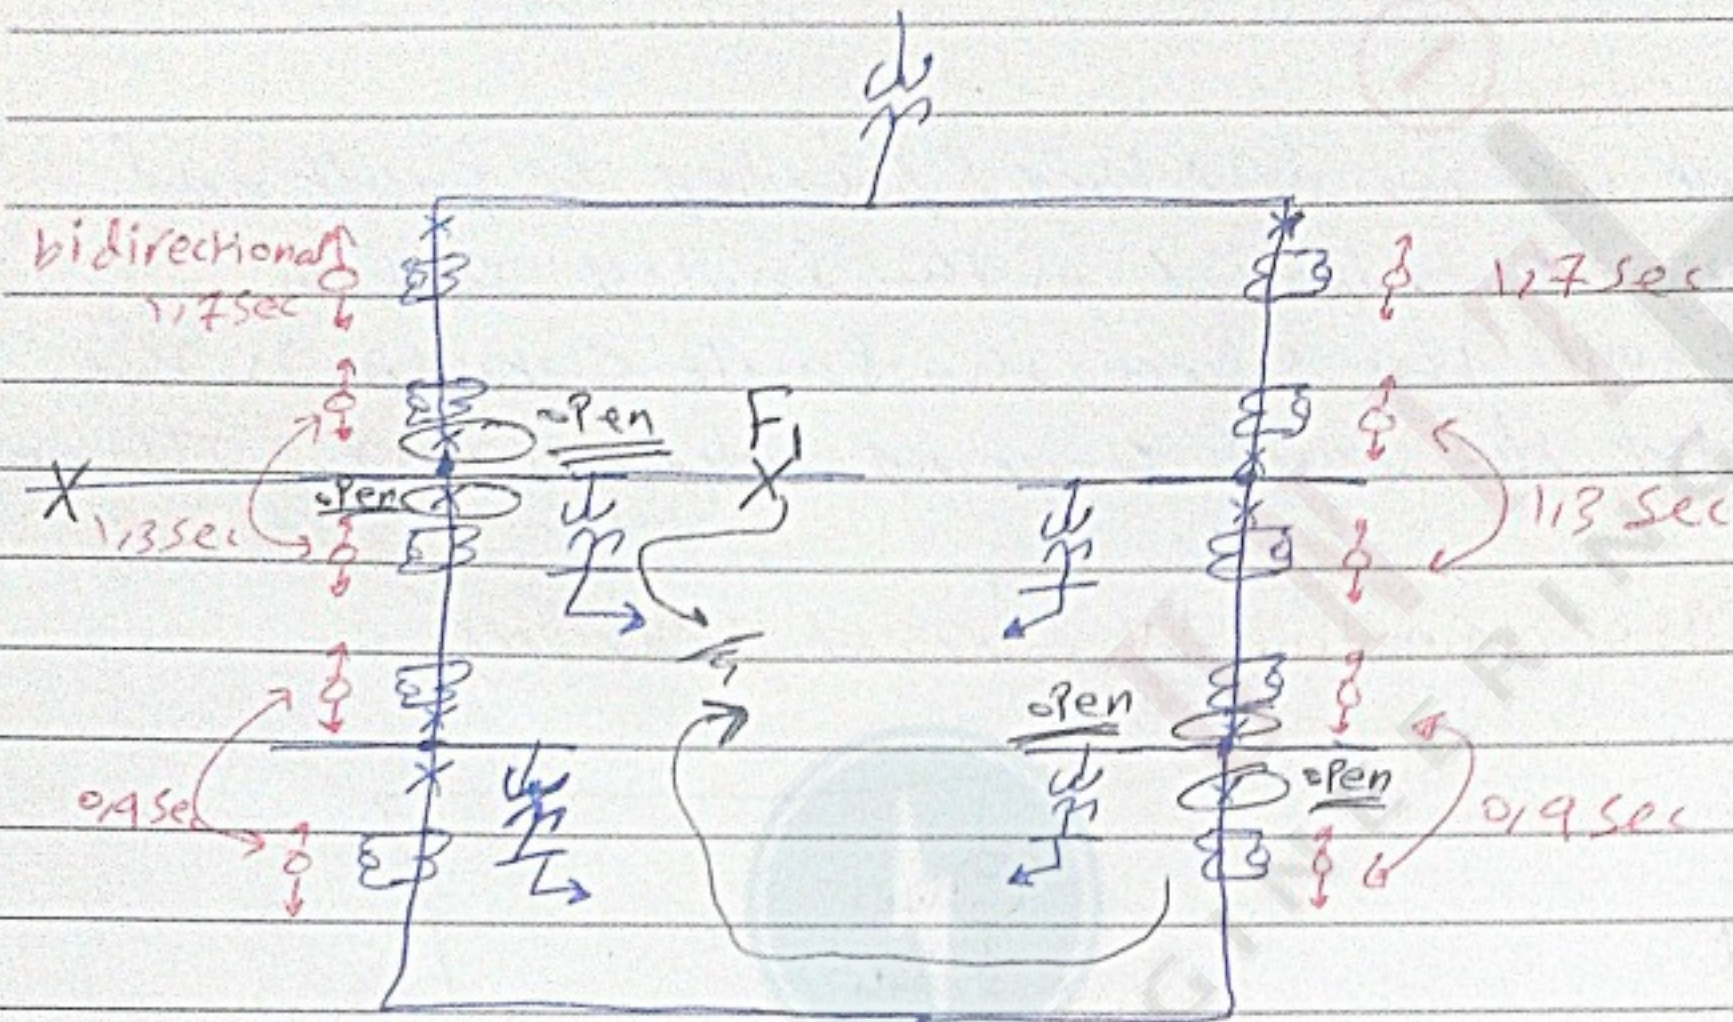 bidirectional
1,7sec
1,7 sec
open
F1
X
X
open
1,3sec
1,3 sec
F1
open
0,9 sec
open
0,9 sec